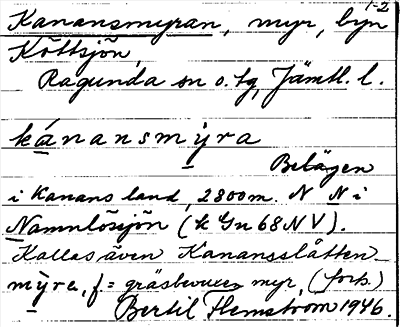 1-2
Kanansmyran, myr, byn
Köttsjön,
Ragunda sn o. tg, Jämtl. l.
kánansmỳra
Belägen
i Kanans land, 2800 m. N N i
Namnlösjön (k Gn 68 NV).
Kallas även Kanansslåtten
mỳra, f = gräsbevuxen myr, (forts.)
Bertil Flemström 1946.